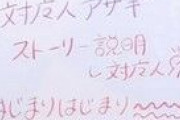 対応人アサギ
ストーリー説明
↳対応人
はじまりはじまり〰〰